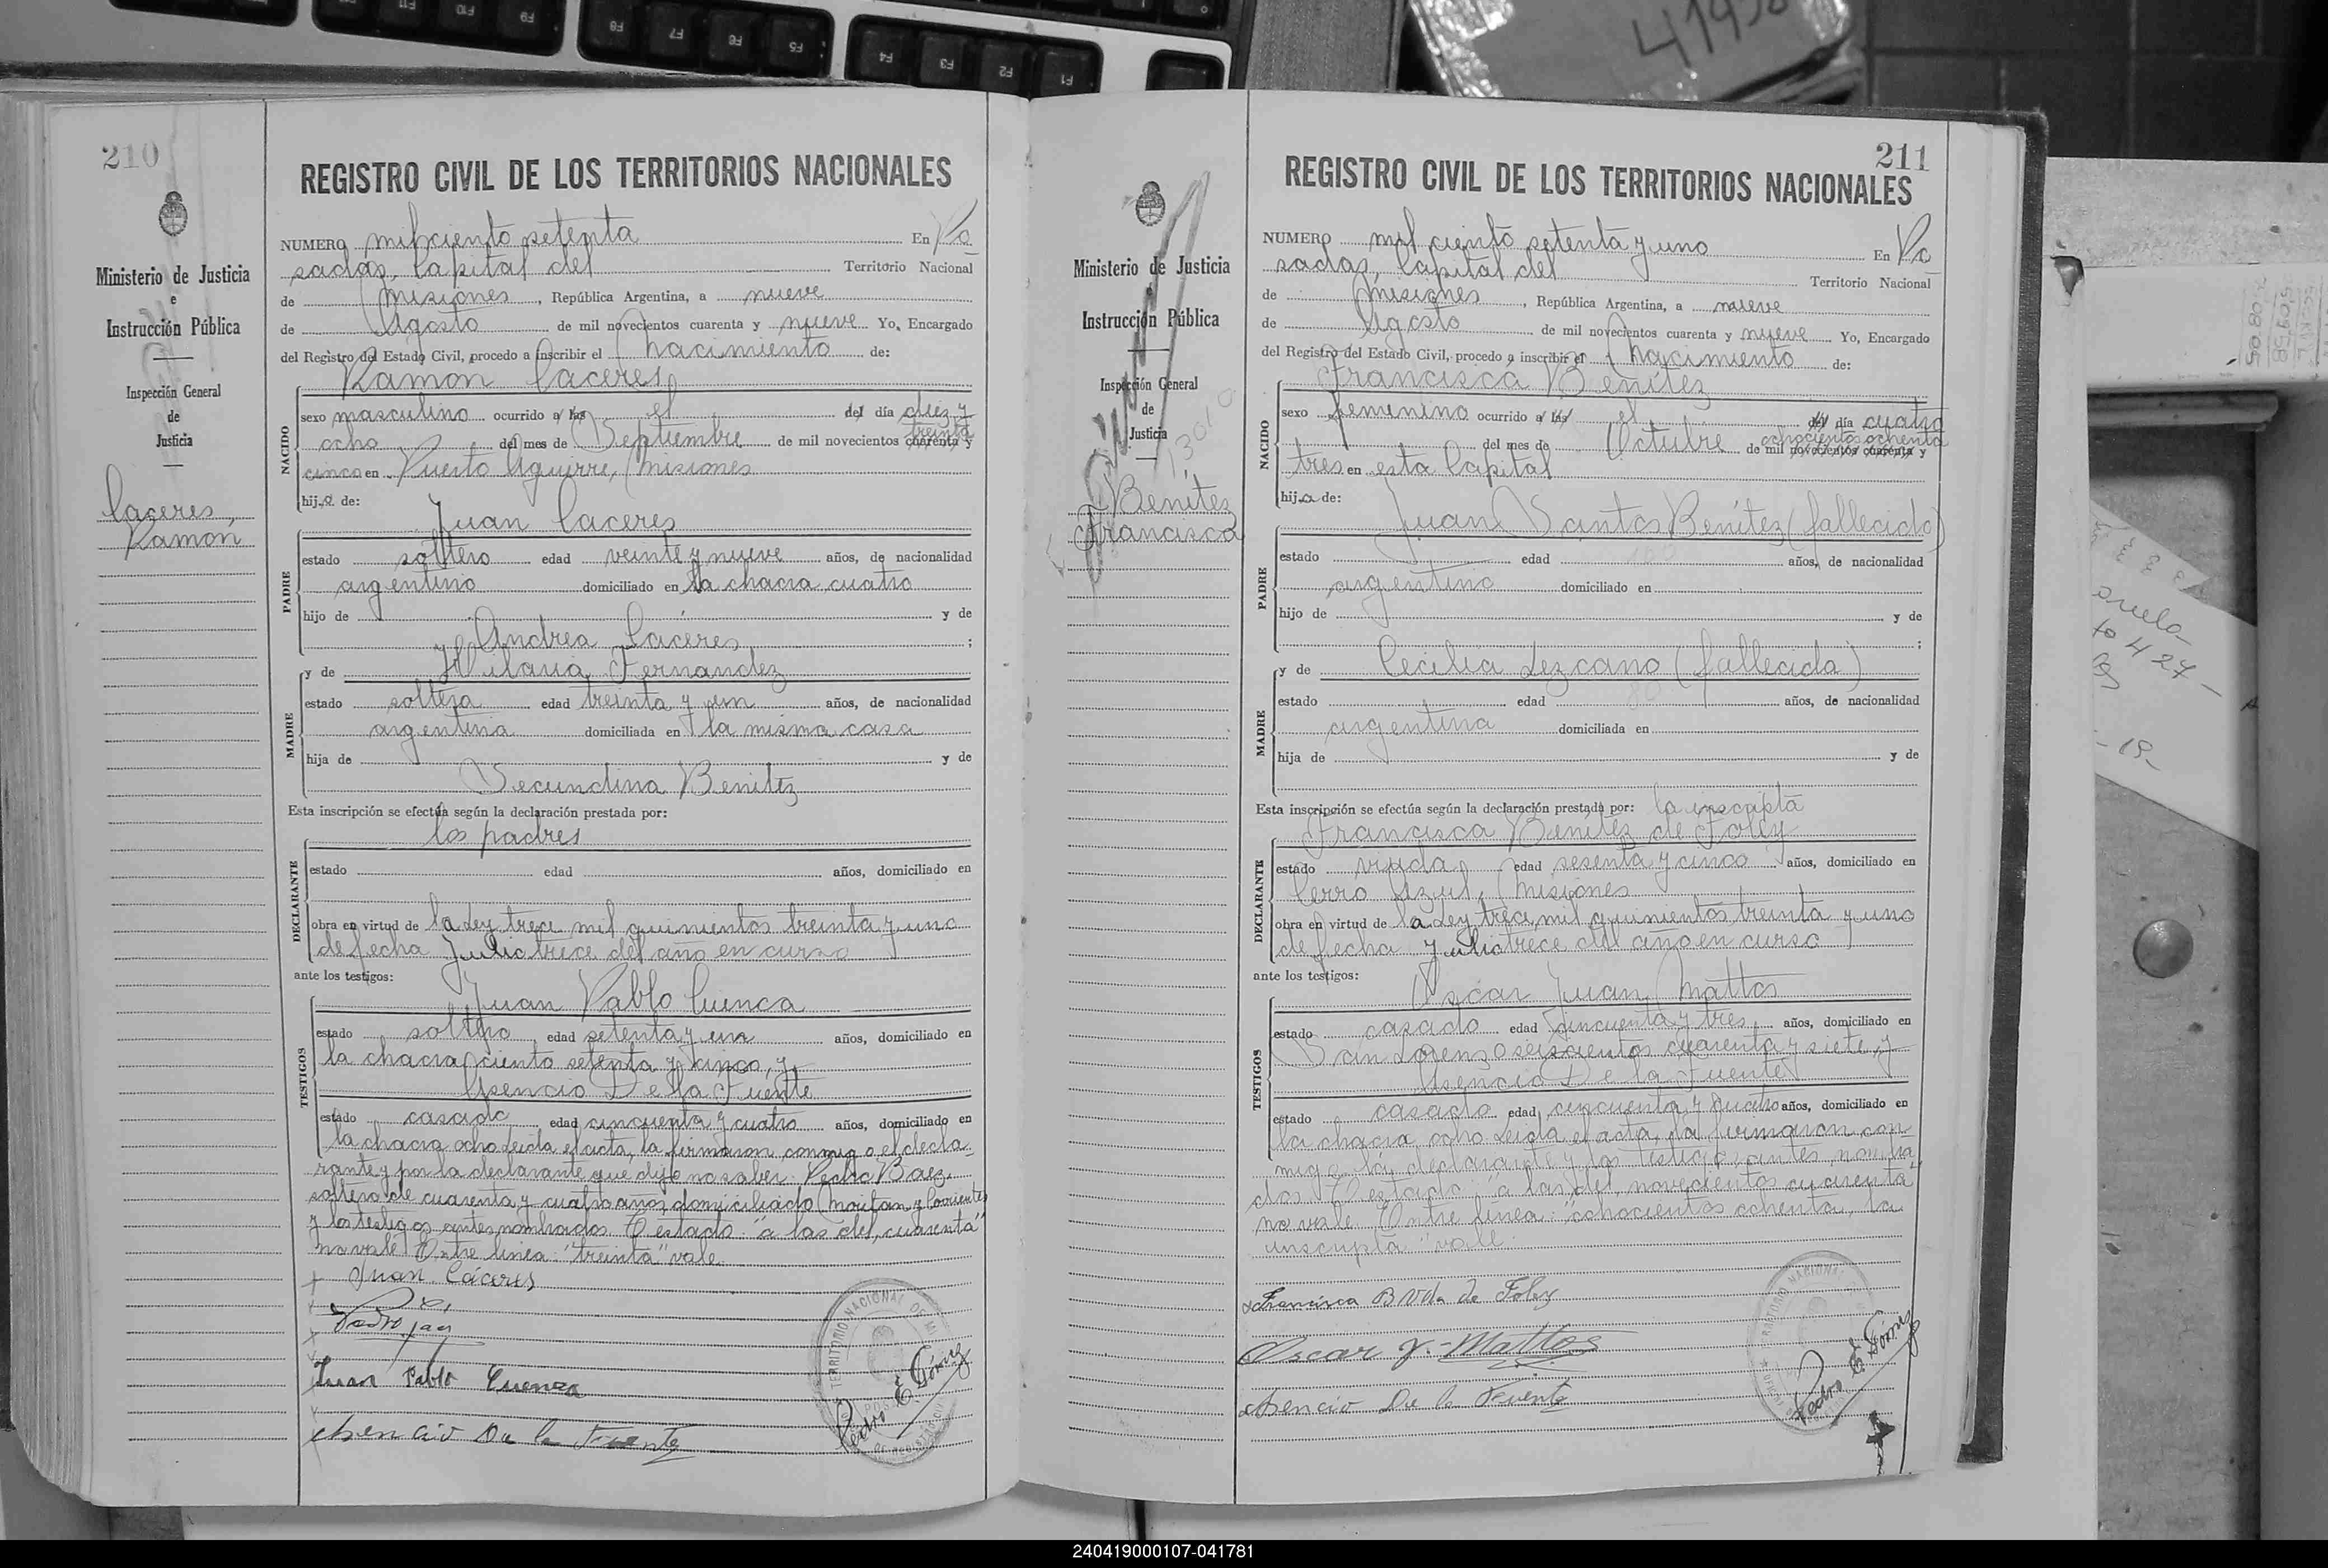 F12 F11 F10 F9 F8 F7 F6 F5 F4 F3 F2 F1
210
Ministerio de Justicia
e
Instrucción Pública
Inspección General
de
Justicia
Caceres,
Ramon
REGISTRO CIVIL DE LOS TERRITORIOS NACIONALES
NUMERO mil ciento setenta En Po
sadas, Capital del Territorio Nacional
de Misiones, República Argentina, a nueve
de Agosto de mil novecientos cuarenta y nueve Yo, Encargado
del Registro del Estado Civil, procedo a inscribir el Nacimiento de:
Ramon Caceres
NACIDO
sexo masculino ocurrido a las el del día diez y
ocho del mes de Septiembre de mil novecientos cuarenta y treinta
cinco en Puerto Aguirre, Misiones
hijo de:
Juan Caceres
PADRE
estado soltero edad veinte y nueve años, de nacionalidad
argentino domiciliado en la chacra cuatro
hijo de y de
Andrea Caceres ;
y de Hilaria Fernandez
MADRE
estado soltera edad treinta y un años, de nacionalidad
argentina domiciliada en la misma casa
hija de y de
Secundina Benitez
Esta inscripción se efectúa según la declaración prestada por:
los padres
DECLARANTE
estado edad años, domiciliado en
obra en virtud de la Ley trece mil quinientos treinta y uno
de fecha Julio trece del año en curso
ante los testigos:
Juan Pablo Cuenca
TESTIGOS
estado soltero edad setenta y un años, domiciliado en
la chacra ciento setenta y cinco, y
Asencio De la Fuente
estado casado edad cincuenta y cuatro años, domiciliado en
la chacra ocho. Leida el acta, la firmaron conmigo, el decla
rante y por la declarante que dijo no saber Pedro Baez,
soltero de cuarenta y cuatro años, domiciliado Moritan y Corrientes
y los testigos antes nombrados. Testado: "a las del, cuarenta"
no vale. Entre linea: "treinta" vale.
Juan Cáceres
Juan Pablo Cuenca
Asencio De la Fuente
Pedro E. Gómez
211
Ministerio de Justicia
e
Instrucción Pública
Inspección General
de
Justicia
Benitez
Francisca
REGISTRO CIVIL DE LOS TERRITORIOS NACIONALES
NUMERO mil ciento setenta y uno En Po
sadas, Capital del Territorio Nacional
de Misiones, República Argentina, a nueve
de Agosto de mil novecientos cuarenta y nueve Yo, Encargado
del Registro del Estado Civil, procedo a inscribir el Nacimiento de:
Francisca Benitez
NACIDO
sexo femenino ocurrido a las el del día cuatro
del mes de Octubre de mil novecientos cuarenta y ochocientos ochenta
tres en esta Capital
hija de:
Juan Santos Benítez (fallecido)
PADRE
estado edad años, de nacionalidad
argentino domiciliado en
hijo de y de
;
y de Cecilia Lezcano (fallecida)
MADRE
estado edad años, de nacionalidad
argentina domiciliada en
hija de y de
Esta inscripción se efectúa según la declaración prestada por: la inscripta
Francisca Benítez de Foley
DECLARANTE
estado viuda edad sesenta y cinco años, domiciliado en
Cerro Azul, Misiones
obra en virtud de la Ley trece mil quinientos treinta y uno
de fecha Julio trece del año en curso
ante los testigos:
Oscar Juan Mattos
TESTIGOS
estado casado edad cincuenta y tres años, domiciliado en
San Lorenzo seiscientos cuarenta y siete, y
Asencio De la Fuente
estado casado edad cincuenta y cuatro años, domiciliado en
la chacra ocho. Leida el acta, la firmaron con
migo la declarante y los testigos antes nombra
dos. Testado: "a las del, novecientos cuarenta"
no vale. Entre linea: "ochocientos ochenta, la
inscripta" vale.
Francisca B Vda de Foley
Oscar J. Mattos
Asencio De la Fuente
Pedro E. Gómez
240419000107-041781